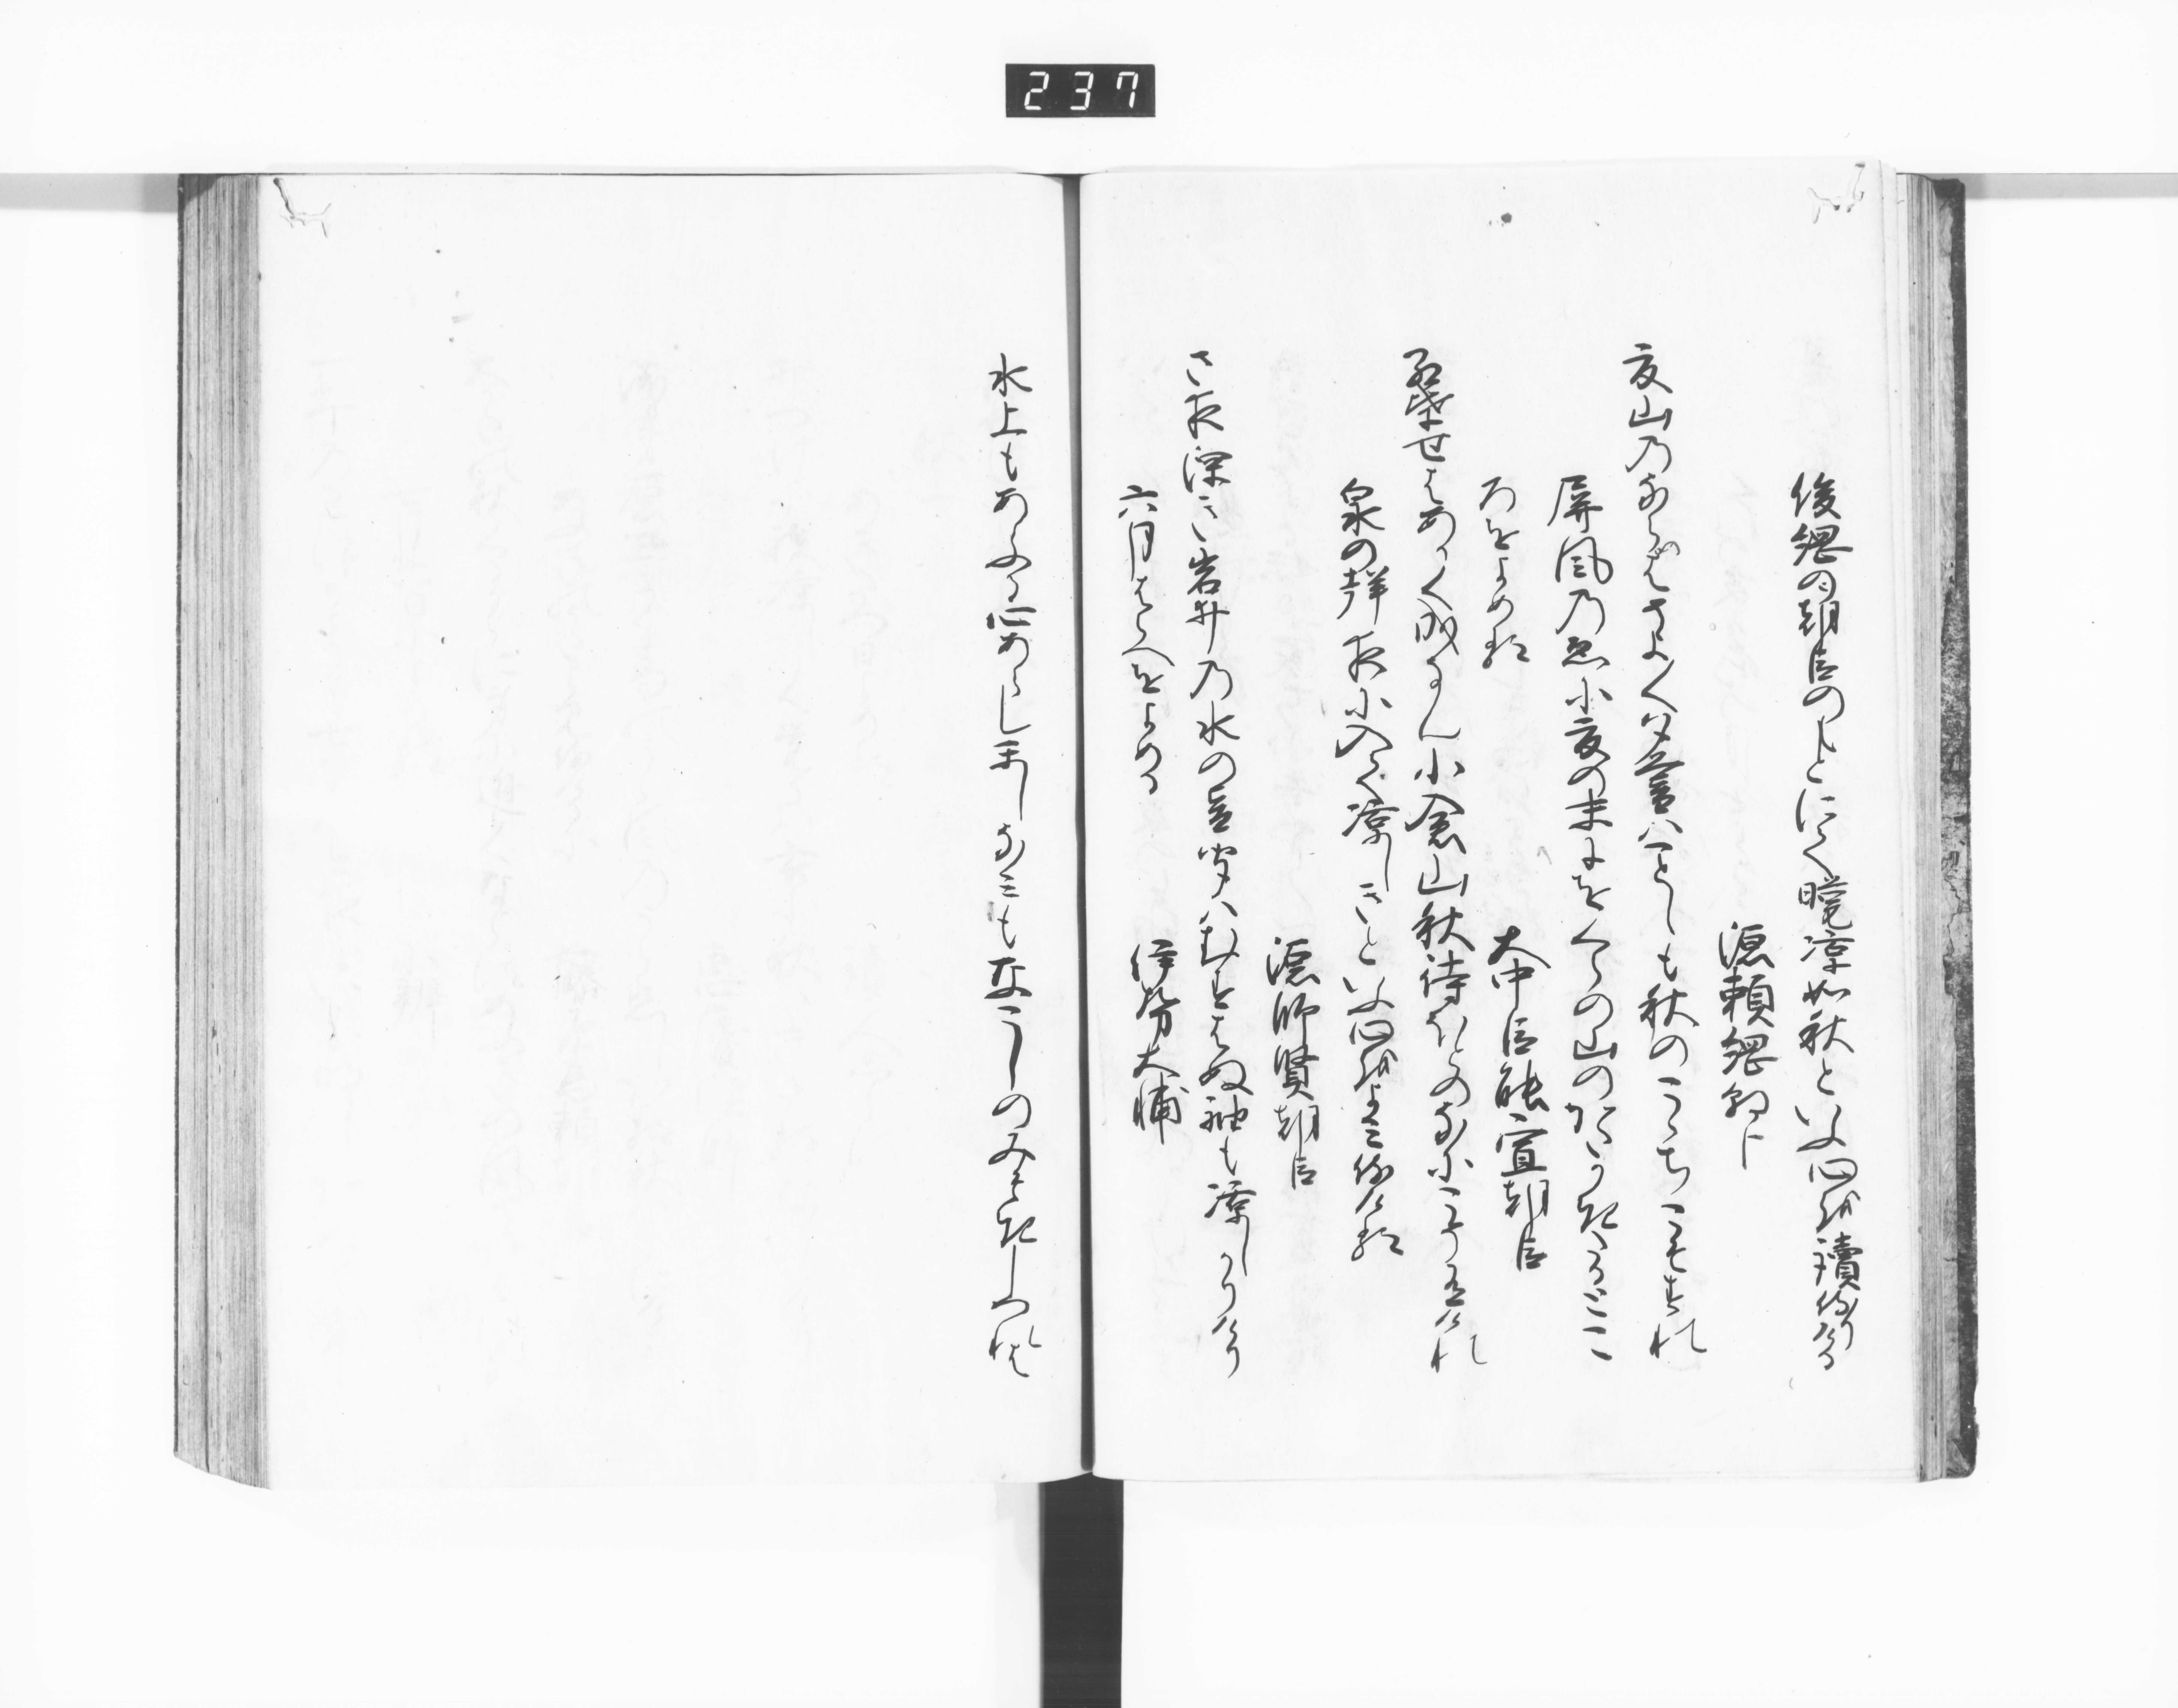 237
俊綱の朝臣のもとにて晩涼如秋といふ心を讀侍ける
源頼綱朝臣
夏山のならのはそよく夕暮はことしも秋のこゝちこそすれ
屏風の絵に夏の末にをくらの山のかたかきたるとこ
ろをよめる
大中臣能宣朝臣
紅葉せはあかく成なん小倉山秋待ほとのなにこそ有けれ
泉の声夜に入て涼しきといふ心をよみ侍ける
源師賢朝臣
さ夜深き岩井の水の音聞はむすはぬ袖も涼しかりけり
六月はらへをよめる
伊勢大輔
水上もあらふる心あらしかしなみもなこしのみそきしつれは